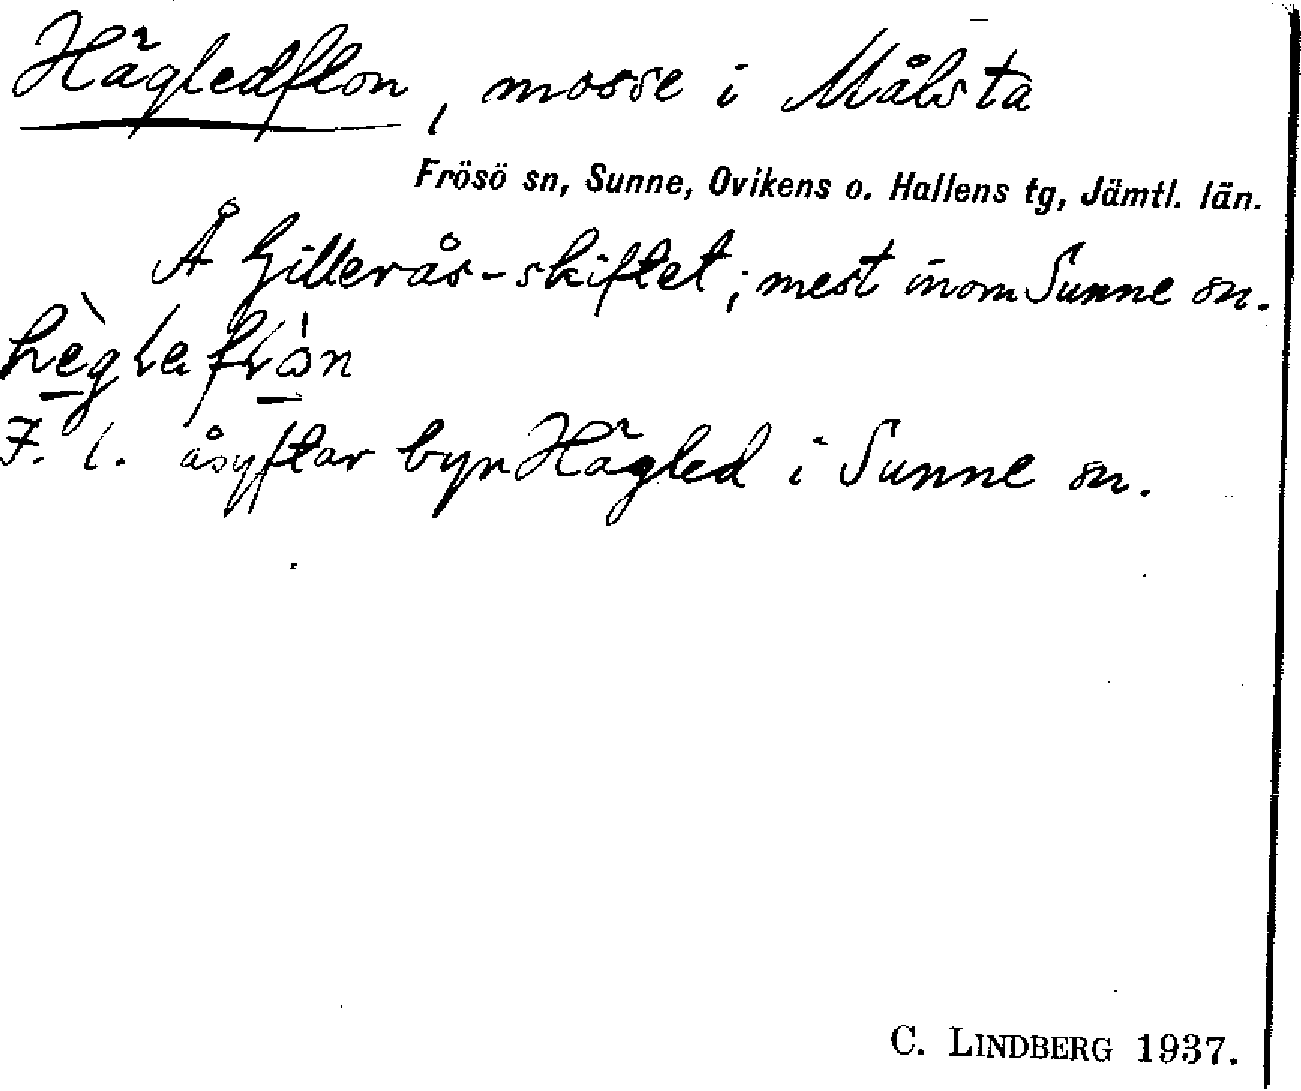 Hägledflon, mosse i Målsta
Frösö sn, Sunne, Ovikens o. Hallens tg, Jämtl. län.
Å Gillerås-skiftet; mest inom Sunne sn.
F. l. åsyftar byn Hägled i Sunne sn.
C. LINDBERG 1937.